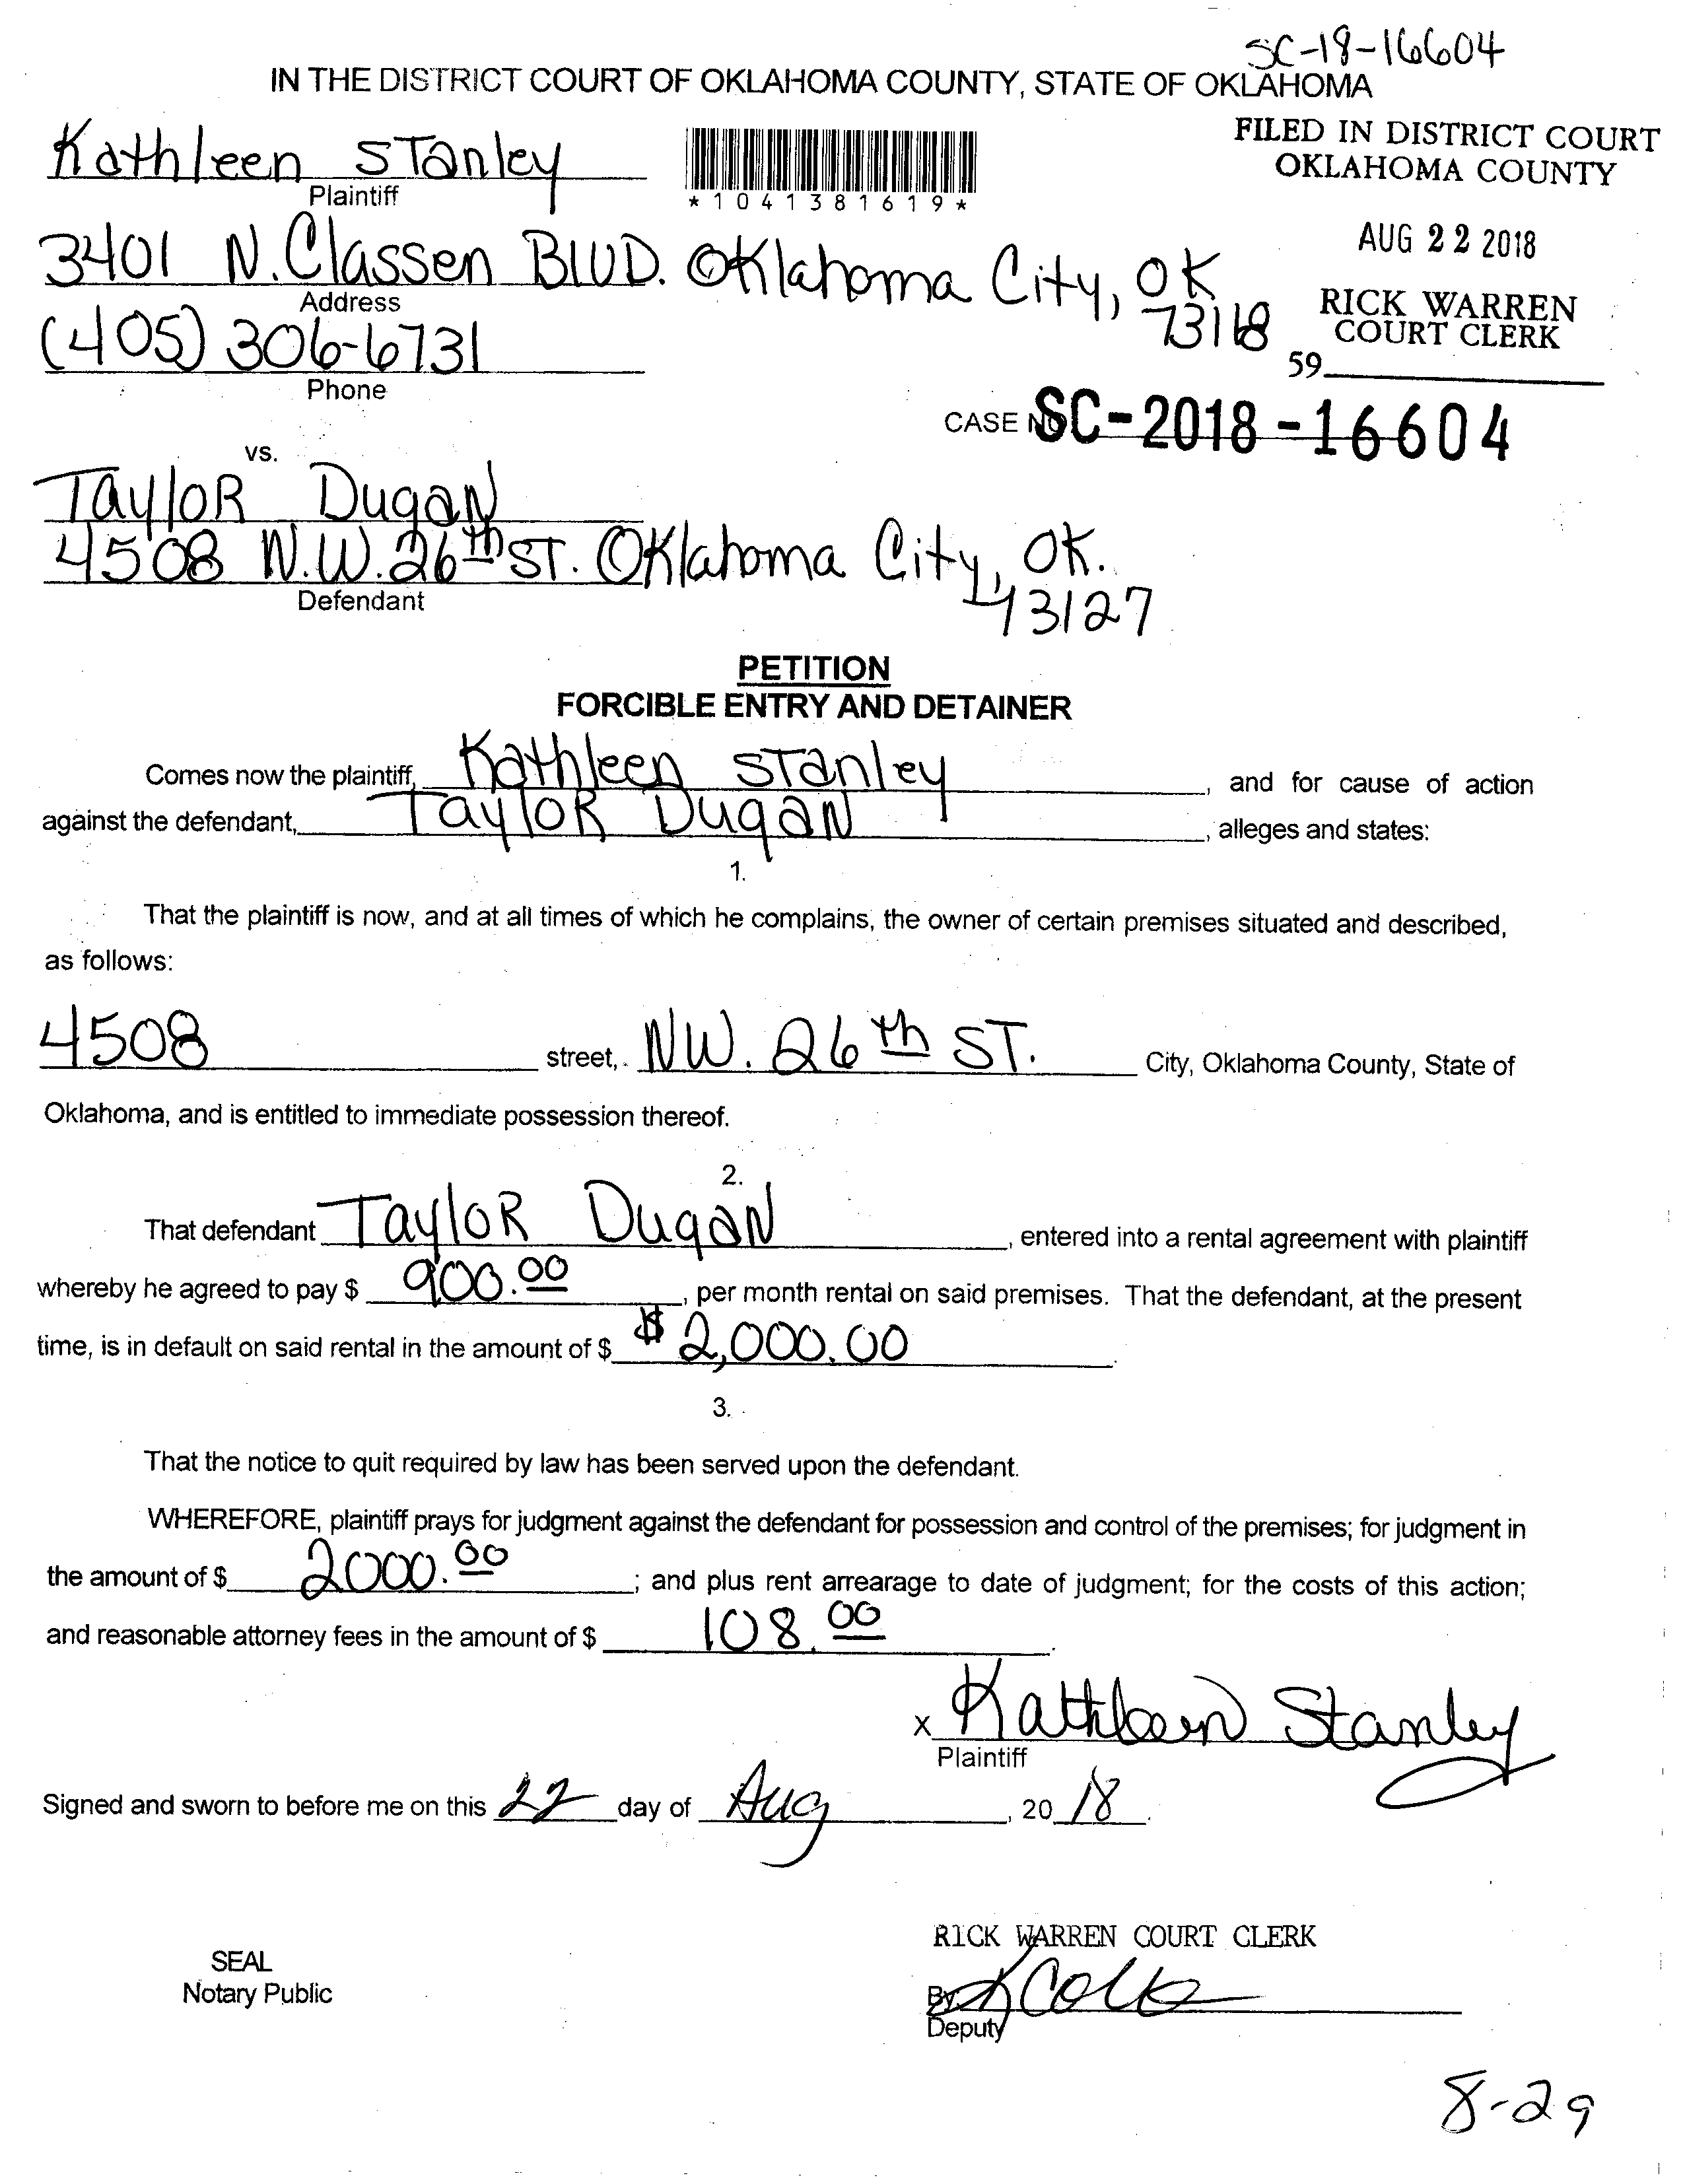 SC-18-16604
IN THE DISTRICT COURT OF OKLAHOMA COUNTY, STATE OF OKLAHOMA
Kathleen Stanley
Plaintiff
*1041381619*
FILED IN DISTRICT COURT
OKLAHOMA COUNTY
AUG 22 2018
RICK WARREN
COURT CLERK
59
3401 N. Classen BLVD. Oklahoma City, OK
73118
Address
(405) 306-6731
Phone
CASE NO SC-2018-16604
vs.
Taylor Dugan
4508 N.W. 26th ST. Oklahoma City, OK.
73127
Defendant
PETITION
FORCIBLE ENTRY AND DETAINER
Comes now the plaintiff, Kathleen Stanley, and for cause of action
against the defendant, Taylor Dugan, alleges and states:
1.
That the plaintiff is now, and at all times of which he complains, the owner of certain premises situated and described,
as follows:
4508 street, NW. 26th ST. City, Oklahoma County, State of
Oklahoma, and is entitled to immediate possession thereof.
2.
That defendant Taylor Dugan, entered into a rental agreement with plaintiff
whereby he agreed to pay $ 900.00, per month rental on said premises. That the defendant, at the present
time, is in default on said rental in the amount of $ $2,000.00.
3.
That the notice to quit required by law has been served upon the defendant.
WHEREFORE, plaintiff prays for judgment against the defendant for possession and control of the premises; for judgment in
the amount of $ 2000.00; and plus rent arrearage to date of judgment; for the costs of this action;
and reasonable attorney fees in the amount of $ 108.00.
x Kathleen Stanley
Plaintiff
Signed and sworn to before me on this 22 day of Aug, 2018.
RICK WARREN COURT CLERK
SEAL
Notary Public
By
Deputy
8-29